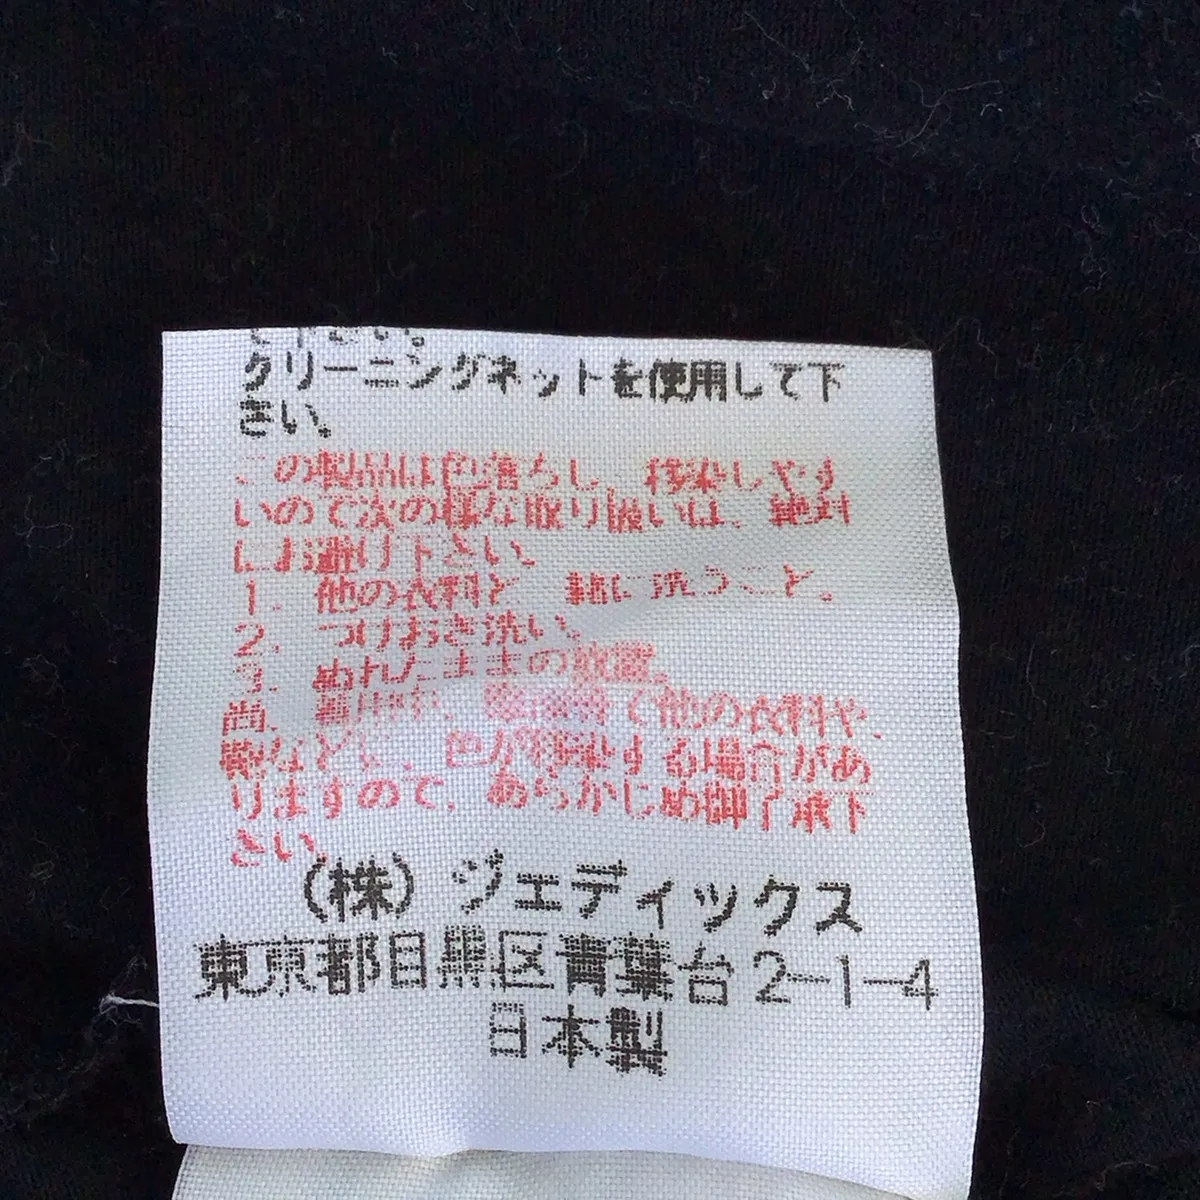 て下さい。
クリーニングネットを使用して下
さい。
この製品は色落ちし、移染しやす
いので次の様な取り扱いは、絶対
にお避け下さい。
1. 他の衣料と一緒に洗うこと。
2. つけおき洗い。
3. ぬれたままの放置。
尚、着用中、で他の衣料や、
鞄などに、色が移染する場合があ
りますので、あらかじめ御了承下
さい。
(株)ジェディックス
東京都目黒区青葉台2-1-4
日本製